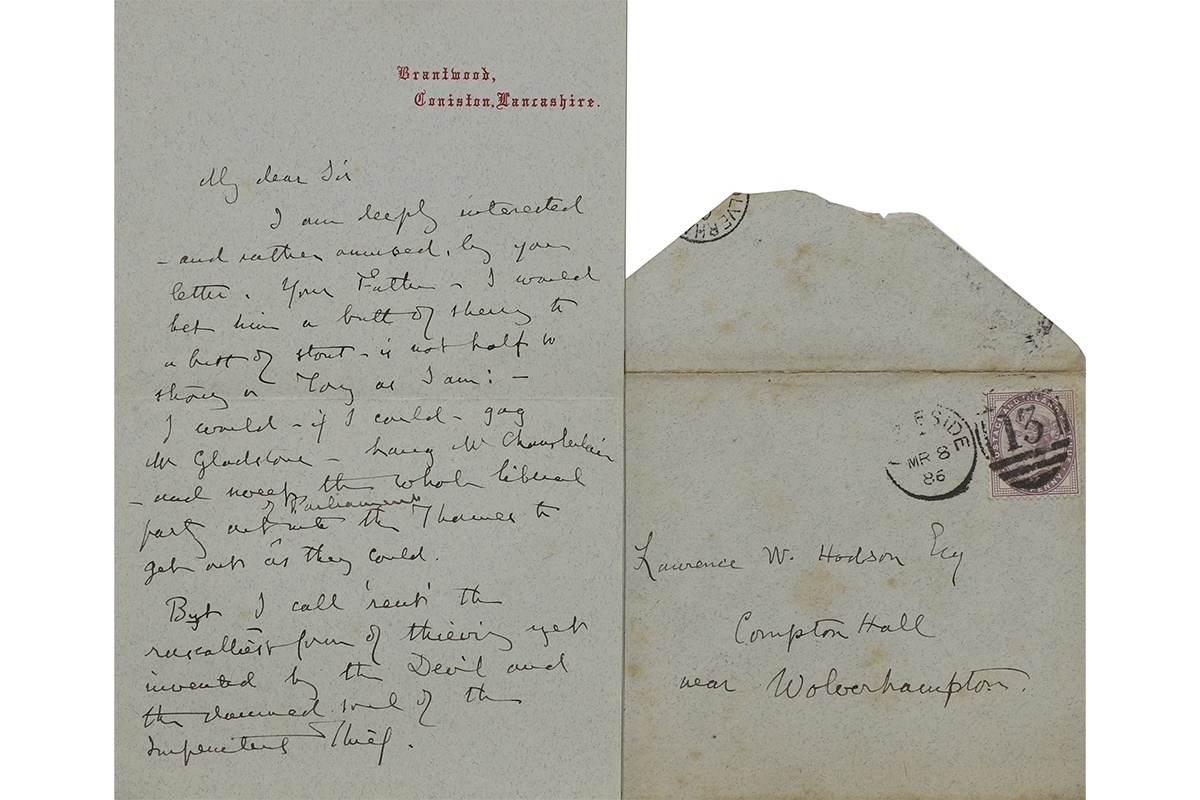 Brantwood,
Coniston, Lancashire.
My dear Sir
I am deeply interested
- and rather amused, by your
letter. Your Father - I would
bet him a butt of sherry to
a butt of stout - is not half so
strong a Tory as I am: -
I would - if I could - gag
Mr Gladstone - hang Mr Chamberlain
- and sweep the whole liberal
of Parliament
party out into the Thames to
get out as they could.
But I call 'rent' the
rascalliest form of thieving yet
invented by the Devil and
the damned soul of the
Impenitent Thief.
LVERH
ESIDE
MR 8
86
13
POSTAGE AND INLAND
PENNY
Lawrence W. Hodson Esq
Compton Hall
near Wolverhampton.